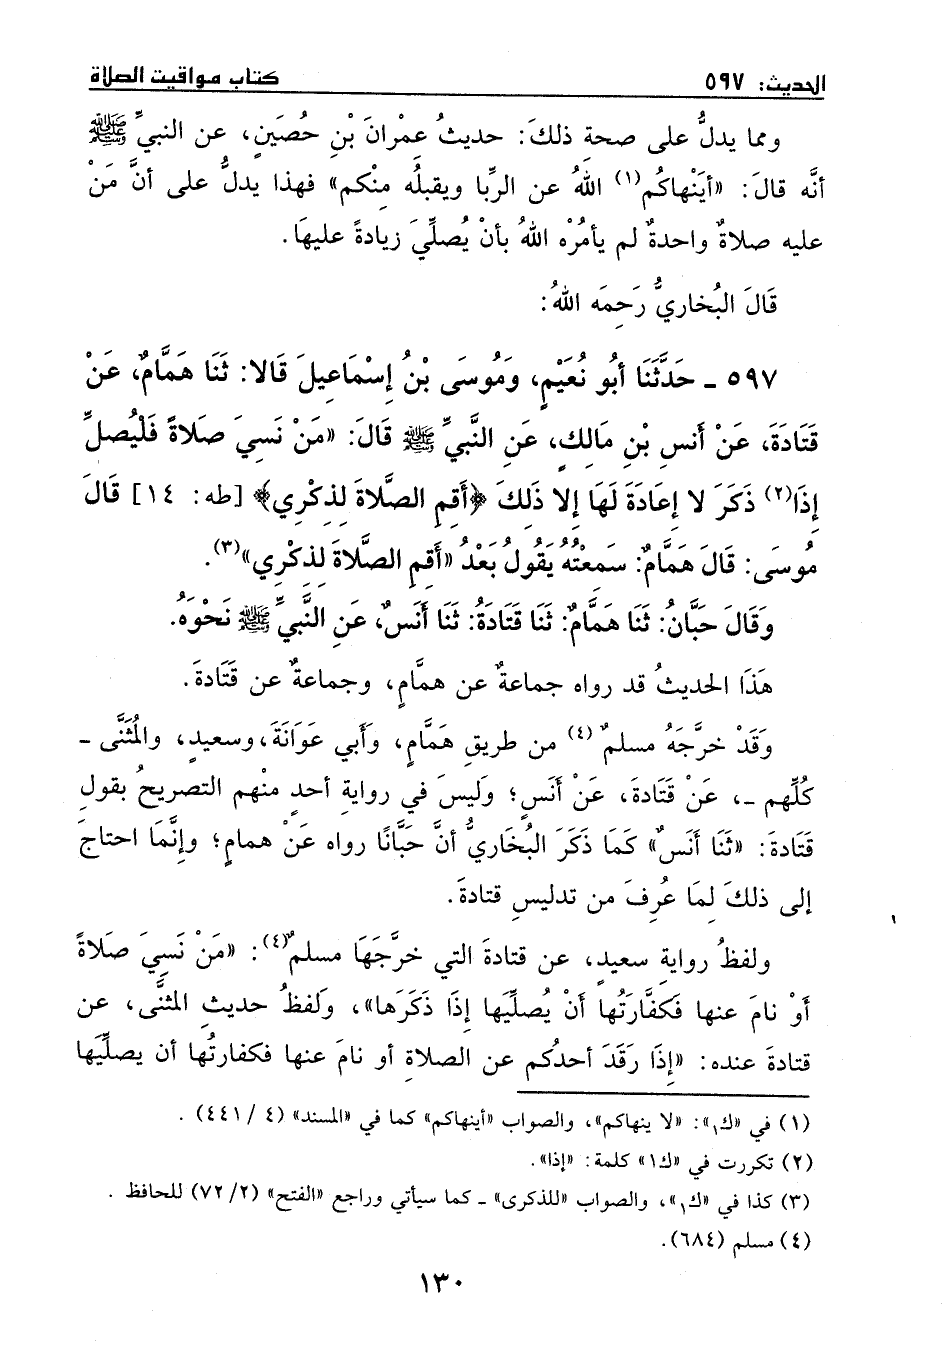 الحديث: ٥٩٧
كتاب مواقيت الصلاة
ومما يدلُّ على صحةِ ذلكَ: حديثُ عِمْرانَ بْنِ حُصَينٍ، عن النبيِّ ﷺ
أنَّه قالَ: «أيَنْهاكُم(١) اللهُ عن الرِّبا ويقبلُه مِنْكم» فهذا يدلُّ على أنَّ مَنْ
عليه صلاةٌ واحدةٌ لم يأمُرْه اللهُ بأنْ يُصلِّيَ زيادةً عليهَا.
قَالَ البُخاريُّ رَحِمَه اللهُ:
٥٩٧ ـ حَدَّثَنَا أبُو نُعَيْمٍ، وَمُوسَى بْنُ إِسْمَاعِيلَ قَالا: ثَنَا هَمَّامٌ، عَنْ
قَتَادَةَ، عَنْ أَنسِ بْنِ مَالِكٍ، عَنِ النَّبيِّ ﷺ قَالَ: «مَنْ نَسِيَ صَلاةً فَلْيُصلِّ
إِذَا(٢) ذَكَرَ لا إِعَادَةَ لَهَا إِلا ذَلِكَ ﴿أَقِمِ الصَّلاةَ لِذِكْرِي﴾ [طه: ١٤] قَالَ
مُوسَى: قَالَ هَمَّامٌ: سَمِعْتُهُ يَقُولُ بَعْدُ «أَقِمِ الصَّلاةَ لِذِكْرِي»(٣).
وَقَالَ حَبَّانُ: ثَنَا هَمَّامٌ: ثَنَا قَتَادَةُ: ثَنَا أَنَسٌ، عَنِ النَّبيِّ ﷺ نَحْوَهُ.
هَذَا الحديثُ قد رواه جماعةٌ عن همَّامٍ، وجماعةٌ عن قَتَادةَ.
وَقَدْ خرَّجَهُ مسلمٌ(٤) من طريقِ هَمَّامٍ، وأَبي عَوَانَةَ، وسعيدٍ، والمُثنَّى ـ
كُلِّهم ـ، عَنْ قَتَادةَ، عَنْ أنَسٍ؛ وَليسَ في روايةِ أحدٍ منْهم التصريحُ بقولِ
قَتادةَ: «ثَنَا أنَسٌ» كمَا ذكَرَ البُخاريُّ أنَّ حَبَّانًا رواه عَنْ همامٍ؛ وإنَّمَا احتاجَ
إلى ذلكَ لمَا عُرِفَ من تدليسِ قتادةَ.
ولفظُ روايةِ سعيدٍ، عن قتادةَ التي خرَّجَهَا مسلمٌ(٤): «مَنْ نَسِيَ صَلاةً
أوْ نامَ عنها فَكفَّارَتُها أنْ يُصلِّيَها إذَا ذَكَرَها»، ولَفظُ حديثِ المثنَّى، عن
قتادةَ عنده: «إذَا رَقَدَ أحدُكم عن الصلاةِ أو نامَ عنها فكفارتُها أن يصلِّيَها
(١) في «ك١»: «لا ينهاكم»، والصواب «أينهاكم» كما في «المسند» (٤ / ٤٤١) .
(٢) تكررت في «ك١» كلمة: «إذا».
(٣) كذا في «ك١»، والصواب «للذكرى» ـ كما سيأتي وراجع «الفتح» (٢/ ٧٢) للحافظ .
(٤) مسلم (٦٨٤).
١٣٠